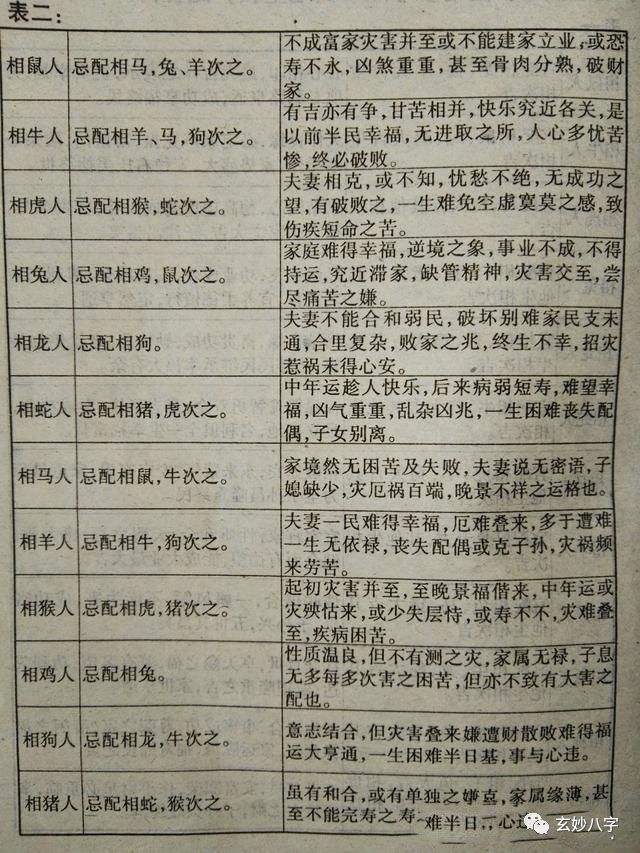 表二：
相鼠人 忌配相马，兔、羊次之。
不成富家灾害并至或不能建家立业，或恐
寿不永，凶煞重重，甚至骨肉分熟，破财
家。
相牛人 忌配相羊、马，狗次之。
有吉亦有争，甘苦相并，快乐究近各关，是
以前半民幸福，无进取之所，人心多忧苦
惨，终必破败。
相虎人 忌配相猴，蛇次之。
夫妻相克，或不知，忧愁不绝，无成功之
望，有破败之，一生难免空虚寞莫之感，致
伤疾短命之苦。
相兔人 忌配相鸡，鼠次之。
家庭难得幸福，逆境之象，事业不成，不得
持运，究近滞家，缺管精神，灾害交至，尝
尽痛苦之嫌。
相龙人 忌配相狗。
夫妻不能合和弱民，破坏别难家民支未
通，合里复杂，败家之兆，终生不幸，招灾
惹祸未得心安。
相蛇人 忌配相猪，虎次之。
中年运趁人快乐，后来病弱短寿，难望幸
福，凶气重重，乱杂凶兆，一生困难丧失配
偶，子女别离。
相马人 忌配相鼠，牛次之。
家境然无困苦及失败，夫妻说无密语，子
媳缺少，灾厄祸百端，晚景不祥之运格也。
相羊人 忌配相牛，狗次之。
夫妻一民难得幸福，厄难叠来，多于遭难
一生无依禄，丧失配偶或克子孙，灾祸频
来劳苦。
相猴人 忌配相虎，猪次之。
起初灾害并至，至晚景福偕来，中年运或
灾殃怙来，或少失层恃，或寿不不，灾难叠
至，疾病困苦。
相鸡人 忌配相兔。
性质温良，但不有测之灾，家属无禄，子息
无多每多次害之困苦，但亦不致有大害之
配也。
相狗人 忌配相龙，牛次之。
意志结合，但灾害叠来嫌遭财散败难得福
运大亨通，一生困难半日基，事与心违。
相猪人 忌配相蛇，猴次之。
虽有和合，或有单独之嫌点，家属缘薄，甚
至不能完寿之寿 难半日 心
玄妙八字